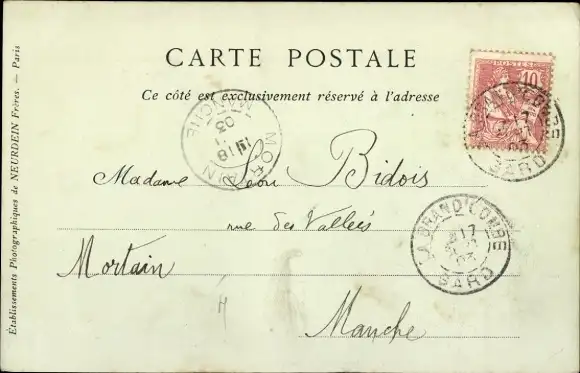 CARTE POSTALE
Ce côté est exclusivement réservé à l'adresse
POSTES
10
MORTAIN
MANCHE
18
03
Madame Léon Bidois
rue des Vallées
Mortain
Manche
LA GRAND'COMBE
17
03
GARD
Établissements Photographiques de NEURDEIN Frères. — Paris